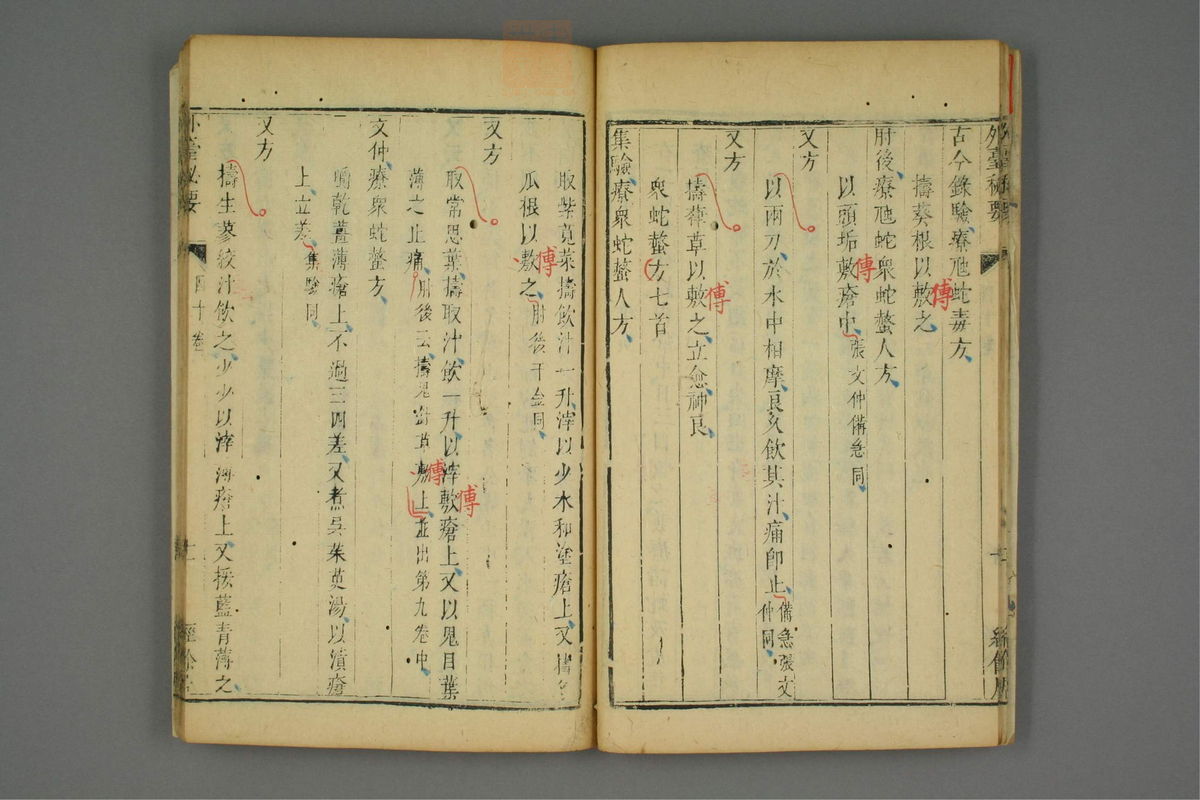 外臺秘要
古今錄驗療虺蛇毒方
擣葵根以敷之
傅
肘後療虺蛇衆蛇螫人方
以頭垢敷瘡中張文仲備急同
傅
又方
以兩刀於水中相摩良久飲其汁痛即止備急張文仲同
又方
擣葎草以敷之立愈神良
傅
衆蛇螫方七首
集驗療衆蛇螫人方
取紫莧菜擣飲汁一升滓以少水和塗瘡上又擣冬
瓜根以敷之肘後千金同
傅
又方
取常思葉擣取汁飲一升以滓敷瘡上又以鬼目葉
傅
薄之止痛肘後云擣鬼針草敷上並出第九卷中
傅
文仲療衆蛇螫方
嚼乾薑薄瘡上不過三四差又煮吳茱萸湯以漬瘡
上立差集驗同
又方
擣生蓼絞汁飲之少少以滓薄瘡上又挼藍青薄之
外臺秘要
四十卷